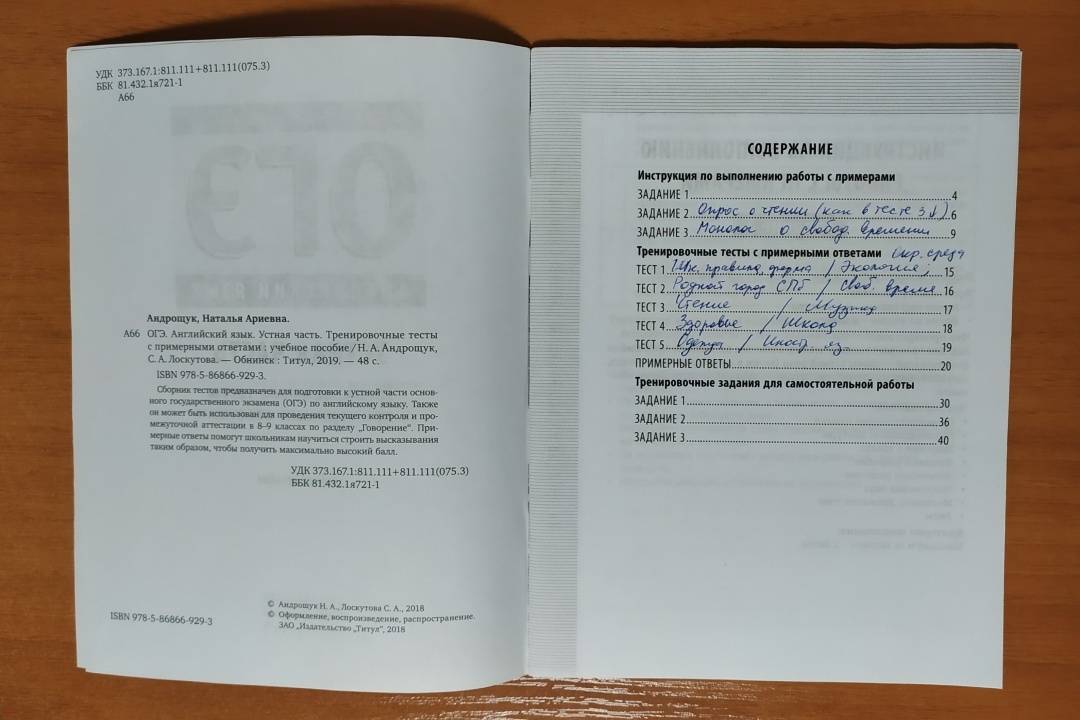 УДК 373.167.1:811.111+811.111(075.3)
ББК 81.432.1я721-1
А66
ОГЭ
Андрощук, Наталья Ариевна.
А66 ОГЭ. Английский язык. Устная часть. Тренировочные тесты
с примерными ответами : учебное пособие / Н. А. Андрощук,
С. А. Лоскутова. — Обнинск : Титул, 2019. — 48 с.
ISBN 978-5-86866-929-3.
Сборник тестов предназначен для подготовки к устной части основ-
ного государственного экзамена (ОГЭ) по английскому языку. Также
он может быть использован для проведения текущего контроля и про-
межуточной аттестации в 8–9 классах по разделу „Говорение". При-
мерные ответы помогут школьникам научиться строить высказывания
таким образом, чтобы получить максимально высокий балл.
УДК 373.167.1:811.111+811.111(075.3)
ББК 81.432.1я721-1
ISBN 978-5-86866-929-3
© Андрощук Н. А., Лоскутова С. А., 2018
© Оформление, воспроизведение, распространение.
ЗАО „Издательство „Титул", 2018
СОДЕРЖАНИЕ
Инструкция по выполнению работы с примерами
ЗАДАНИЕ 1 4
ЗАДАНИЕ 2 Опрос о чтении (как в тесте 3!) 6
ЗАДАНИЕ 3 Монолог о свобод. времени 9
Тренировочные тесты с примерными ответами Окр. среда
ТЕСТ 1 Шк. правила, форма / Экология, 15
ТЕСТ 2 Родной город СПб / Своб. время 16
ТЕСТ 3 Чтение / Музыка 17
ТЕСТ 4 Здоровье / Школа 18
ТЕСТ 5 Одежда / Иностр. яз. 19
ПРИМЕРНЫЕ ОТВЕТЫ 20
Тренировочные задания для самостоятельной работы
ЗАДАНИЕ 1 30
ЗАДАНИЕ 2 36
ЗАДАНИЕ 3 40